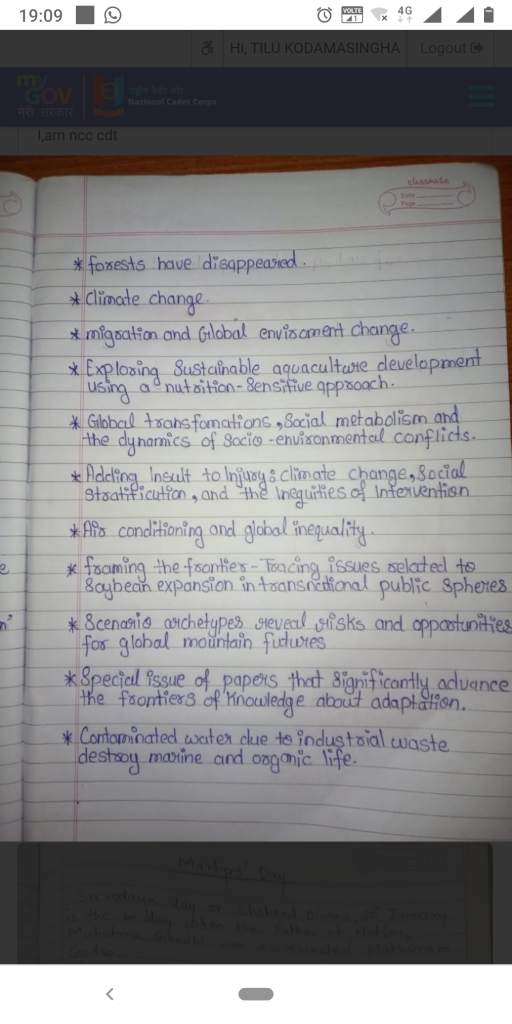 19:09
VOLTE
4G
Hi, TILU KODAMASINGHA Logout
my
GOV
मेरी सरकार
राष्ट्रीय कैडेट कोर
National Cadet Corps
I,am ncc cdt
classmate
Date
Page
* forests have disappeared.
* Climate change.
* migration and Global enviroment change.
* Exploring Sustainable aquaculture development
using a nutrition-Sensitive approach.
* Global transfomations, Social metabolism and
the dynamics of Socio-environmental conflicts.
* Adding Insult to Injury: climate change, Social
Stratification, and the Inequities of Intervention
* Air conditioning and global inequality.
* framing the frontier - Tracing issues related to
Soybean expansion in transnational public Spheres
* Scenario archetypes reveal risks and opportunities
for global mountain futures
* Special issue of papers that Significantly advance
the frontiers of Knowledge about adaptation.
* Contaminated water due to industrial waste
destroy marine and organic life.
Martyrs' Day